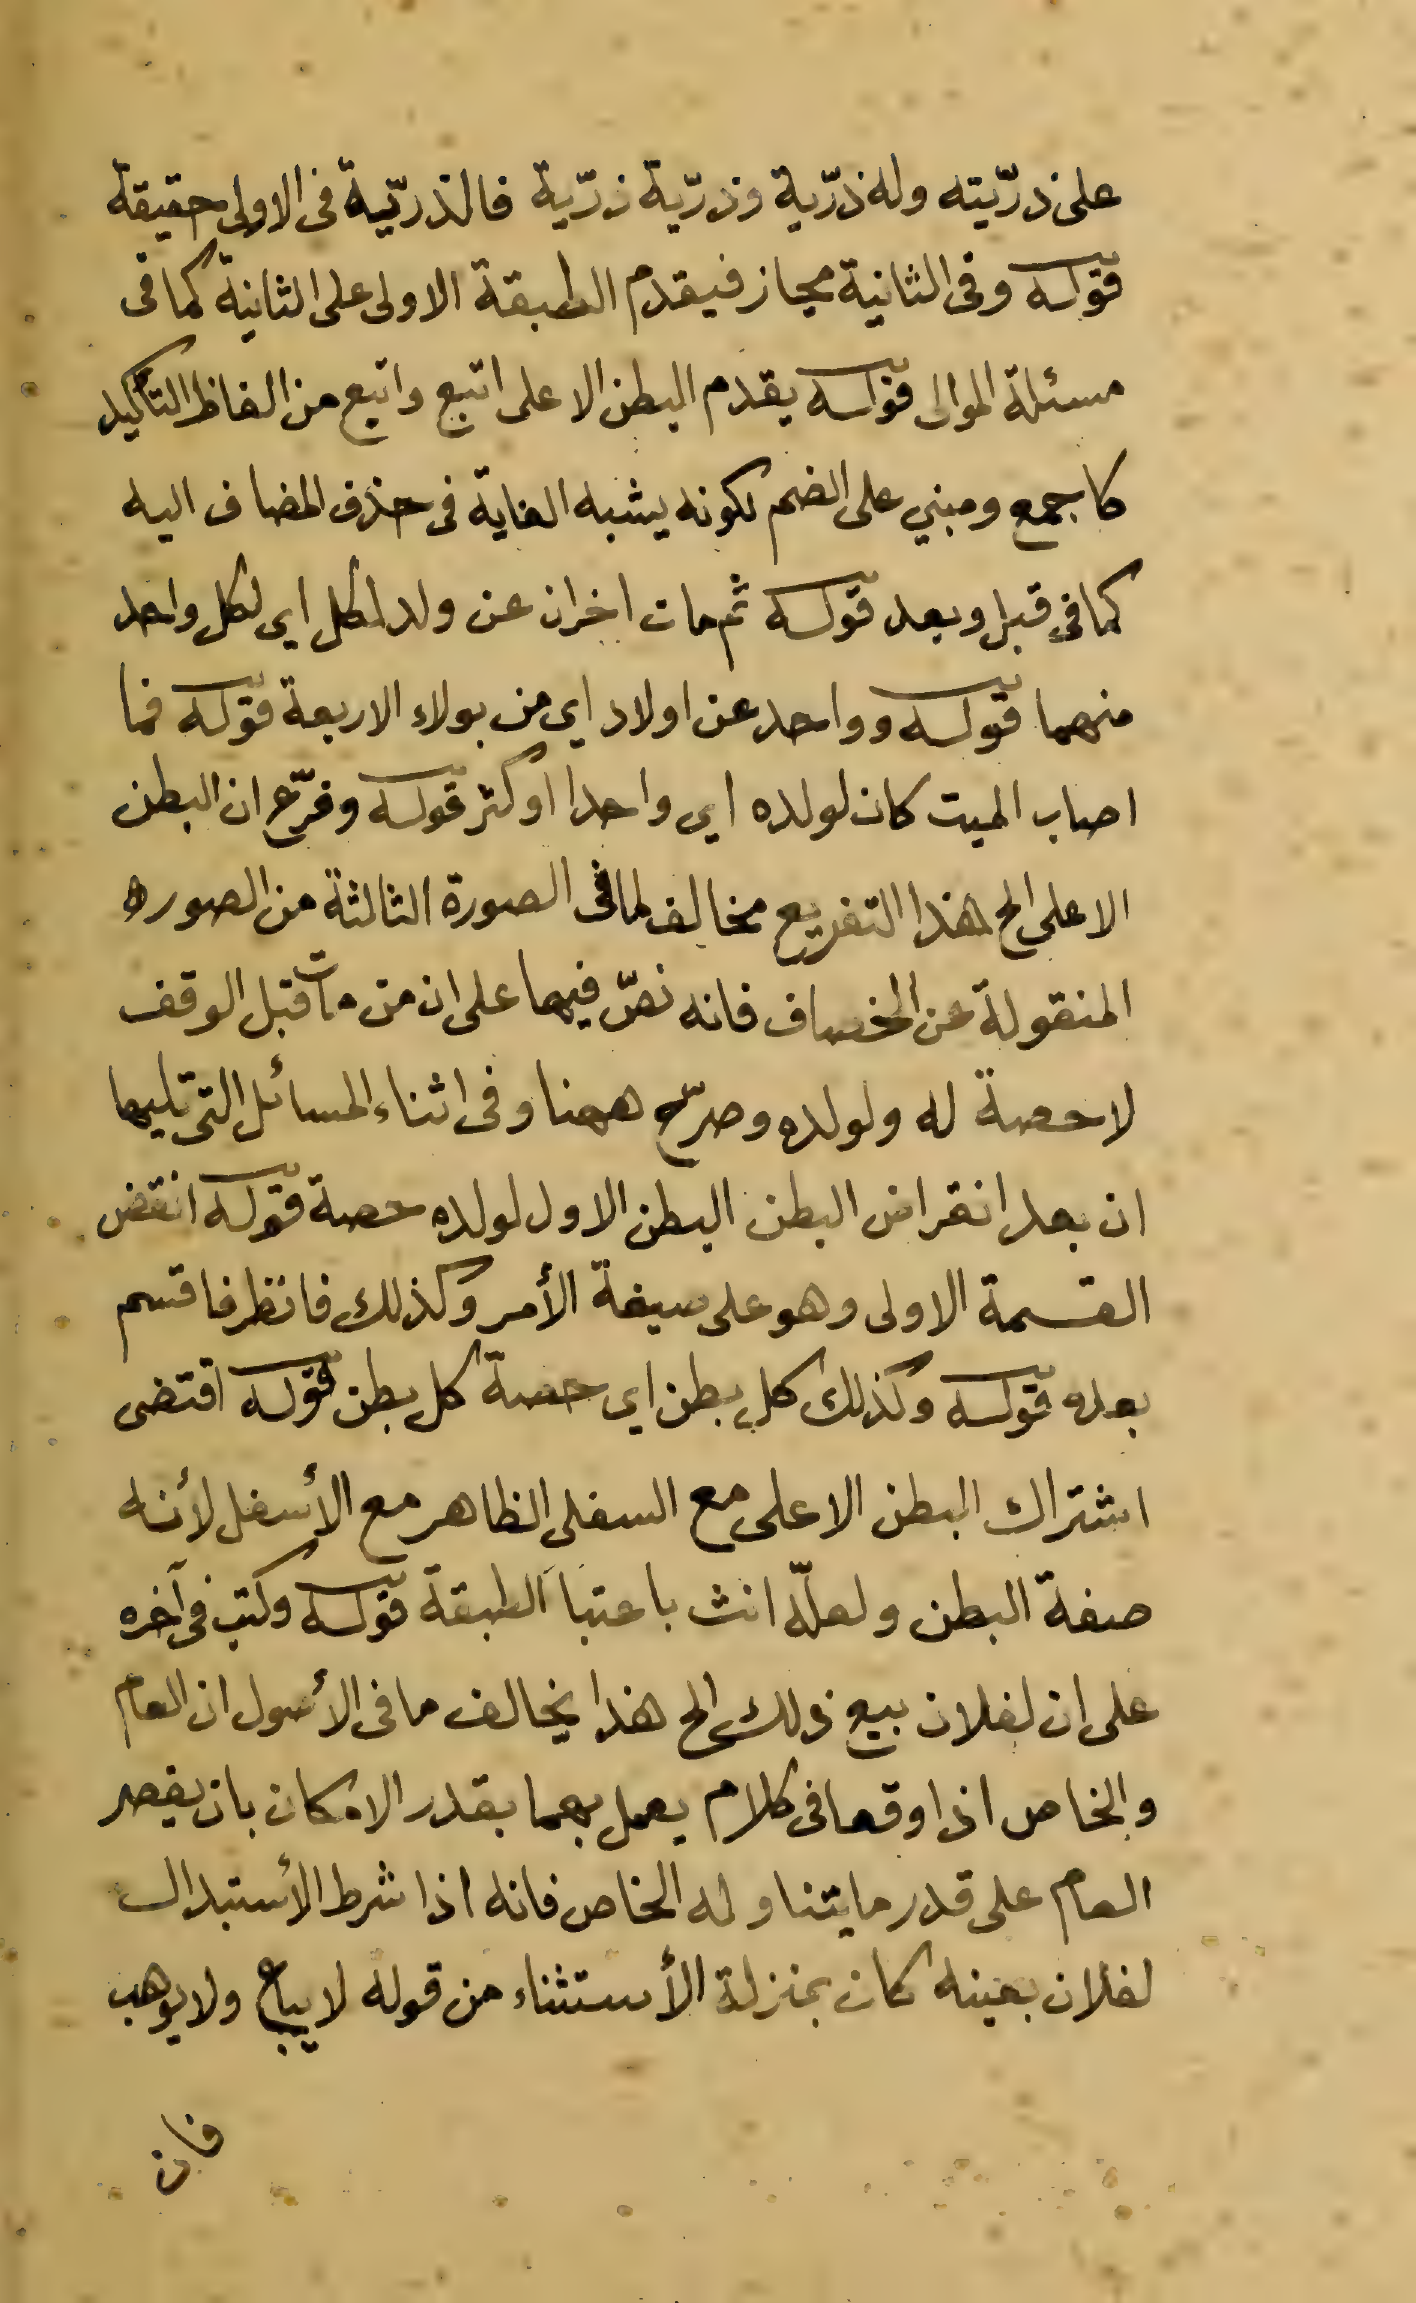 على ذرّيته وله ذرّية وذرّية ذرّية فالذرّية فى الاولى حقيقة
قوله وفى الثانية مجاز فيقدم الطبقة الاولى على الثانية كما فى
مسئلة الموالى قوله يقدم البطن الاعلى اتبع واتبع من الفاظ التأكيد
كاجمع ومبني على الضم لكونه يشبه الغاية فى حذف المضاف اليه
كما فى قبل وبعد قوله ثم مات اخران عن ولد لكل اى لكل واحد
منهما قوله وواحد عن اولاد اى من بولاء الاربعة قوله فما
اصاب الميت كان لولده اى واحدا او كثر قوله وفرّع ان البطن
الاعلى الخ هذا التفريع مخالف لما فى الصورة الثالثة من الصوره
المنقولة عن الخصاف فانه نصّ فيها على ان من مات قبل الوقف
لا حصة له ولولده وصرّح ههنا وفى اثناء المسائل التى تليها
ان بعد انقراض البطن البطن الاول لولده حصة قوله انقض
القسمة الاولى وهو على صيغة الأمر وكذلك فانظر فاقسم
بعده قوله وكذلك كل بطن اى حصة كل بطن قوله اقتضى
اشتراك البطن الاعلى مع السفلى الظاهر مع الأسفل لأنه
صفة البطن ولعلّه انث باعتبا الطبقة قوله وكتب فى آخره
على ان لفلان بيع ذلك الخ هذا يخالف ما فى الأصول ان العام
والخاص اذا وقعا فى كلام يعمل بهما بقدر الامكان بان يقصر
العام على قدر ما يتناوله الخاص فانه اذا شرط الأستبدال
لفلان بعينه كان بمنزلة الأستثناء من قوله لا يباع ولا يوهب
فان